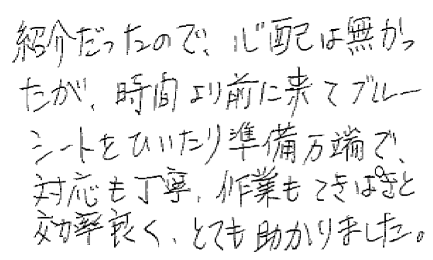 紹介だったので、心配は無かっ
たが、時間より前に来てブルー
シートをひいたり準備万端で、
対応も丁寧、作業もてきぱきと
効率良く、とても助かりました。